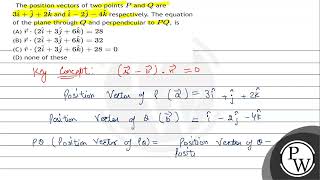 The position vectors of two points P and Q are
3î + ĵ + 2k̂ and î − 2ĵ − 4k̂ respectively. The equation
of the plane through Q and perpendicular to PQ, is
(A) r⃗ · (2î + 3ĵ + 6k̂) = 28
(B) r⃗ · (2î + 3ĵ + 6k̂) = 32
(C) r⃗ · (2î + 3ĵ + 6k̂) + 28 = 0
(D) none of these
Key Concept: (r⃗ − b⃗) · n⃗ = 0
Position Vector of P (a⃗) = 3î + ĵ + 2k̂
Position Vector of Q (b⃗) = î − 2ĵ − 4k̂
PQ (Position Vector of PQ) = Position Vector of Q −
Positi
PW